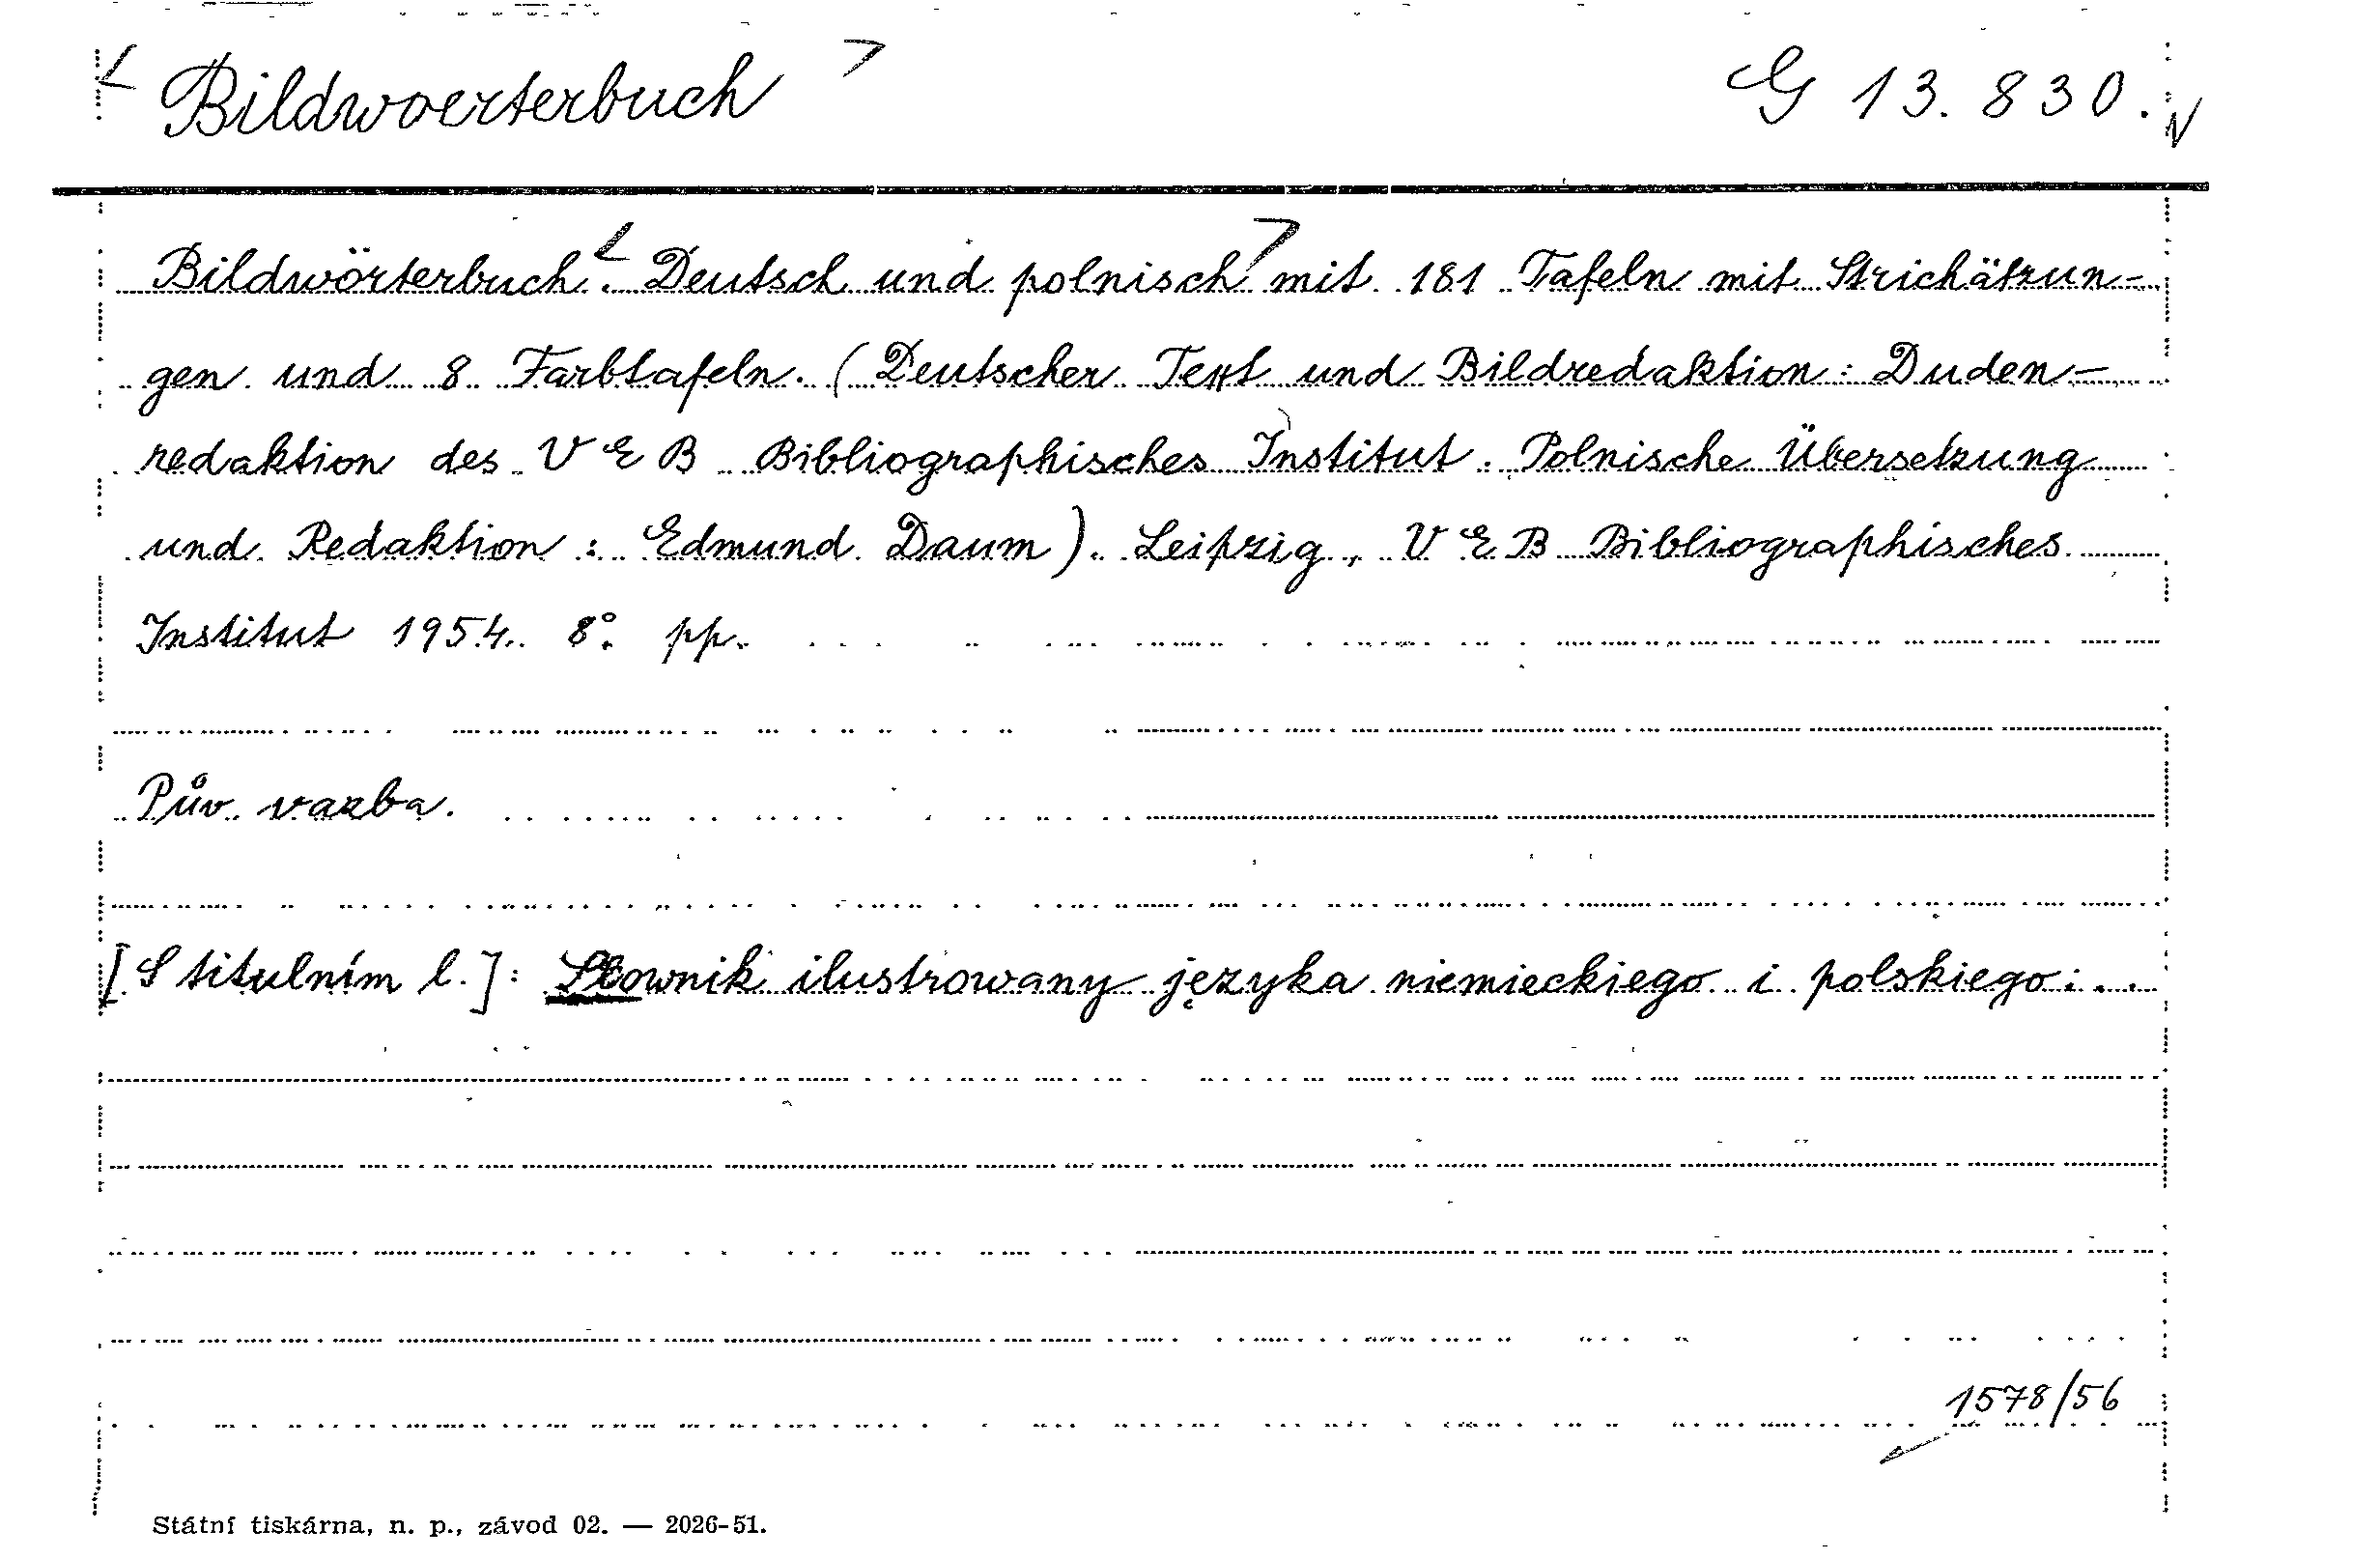 < Bildwoerterbuch > G 13.830.
Bildwörterbuch. < Deutsch und polnisch > mit 181 Tafeln mit Strichätzun-
gen und 8 Farbtafeln. (Deutscher Text und Bildredaktion: Duden-
redaktion des VEB Bibliographisches Institut. Polnische Übersetzung
und Redaktion: Edmund Daum). Leipzig, VEB Bibliographisches
Institut 1954. 8°. pp.
Pův. vazba.
[S titulním l.]: Słownik ilustrowany języka niemieckiego i polskiego...
1578/56
Státní tiskárna, n. p., závod 02. — 2026-51.